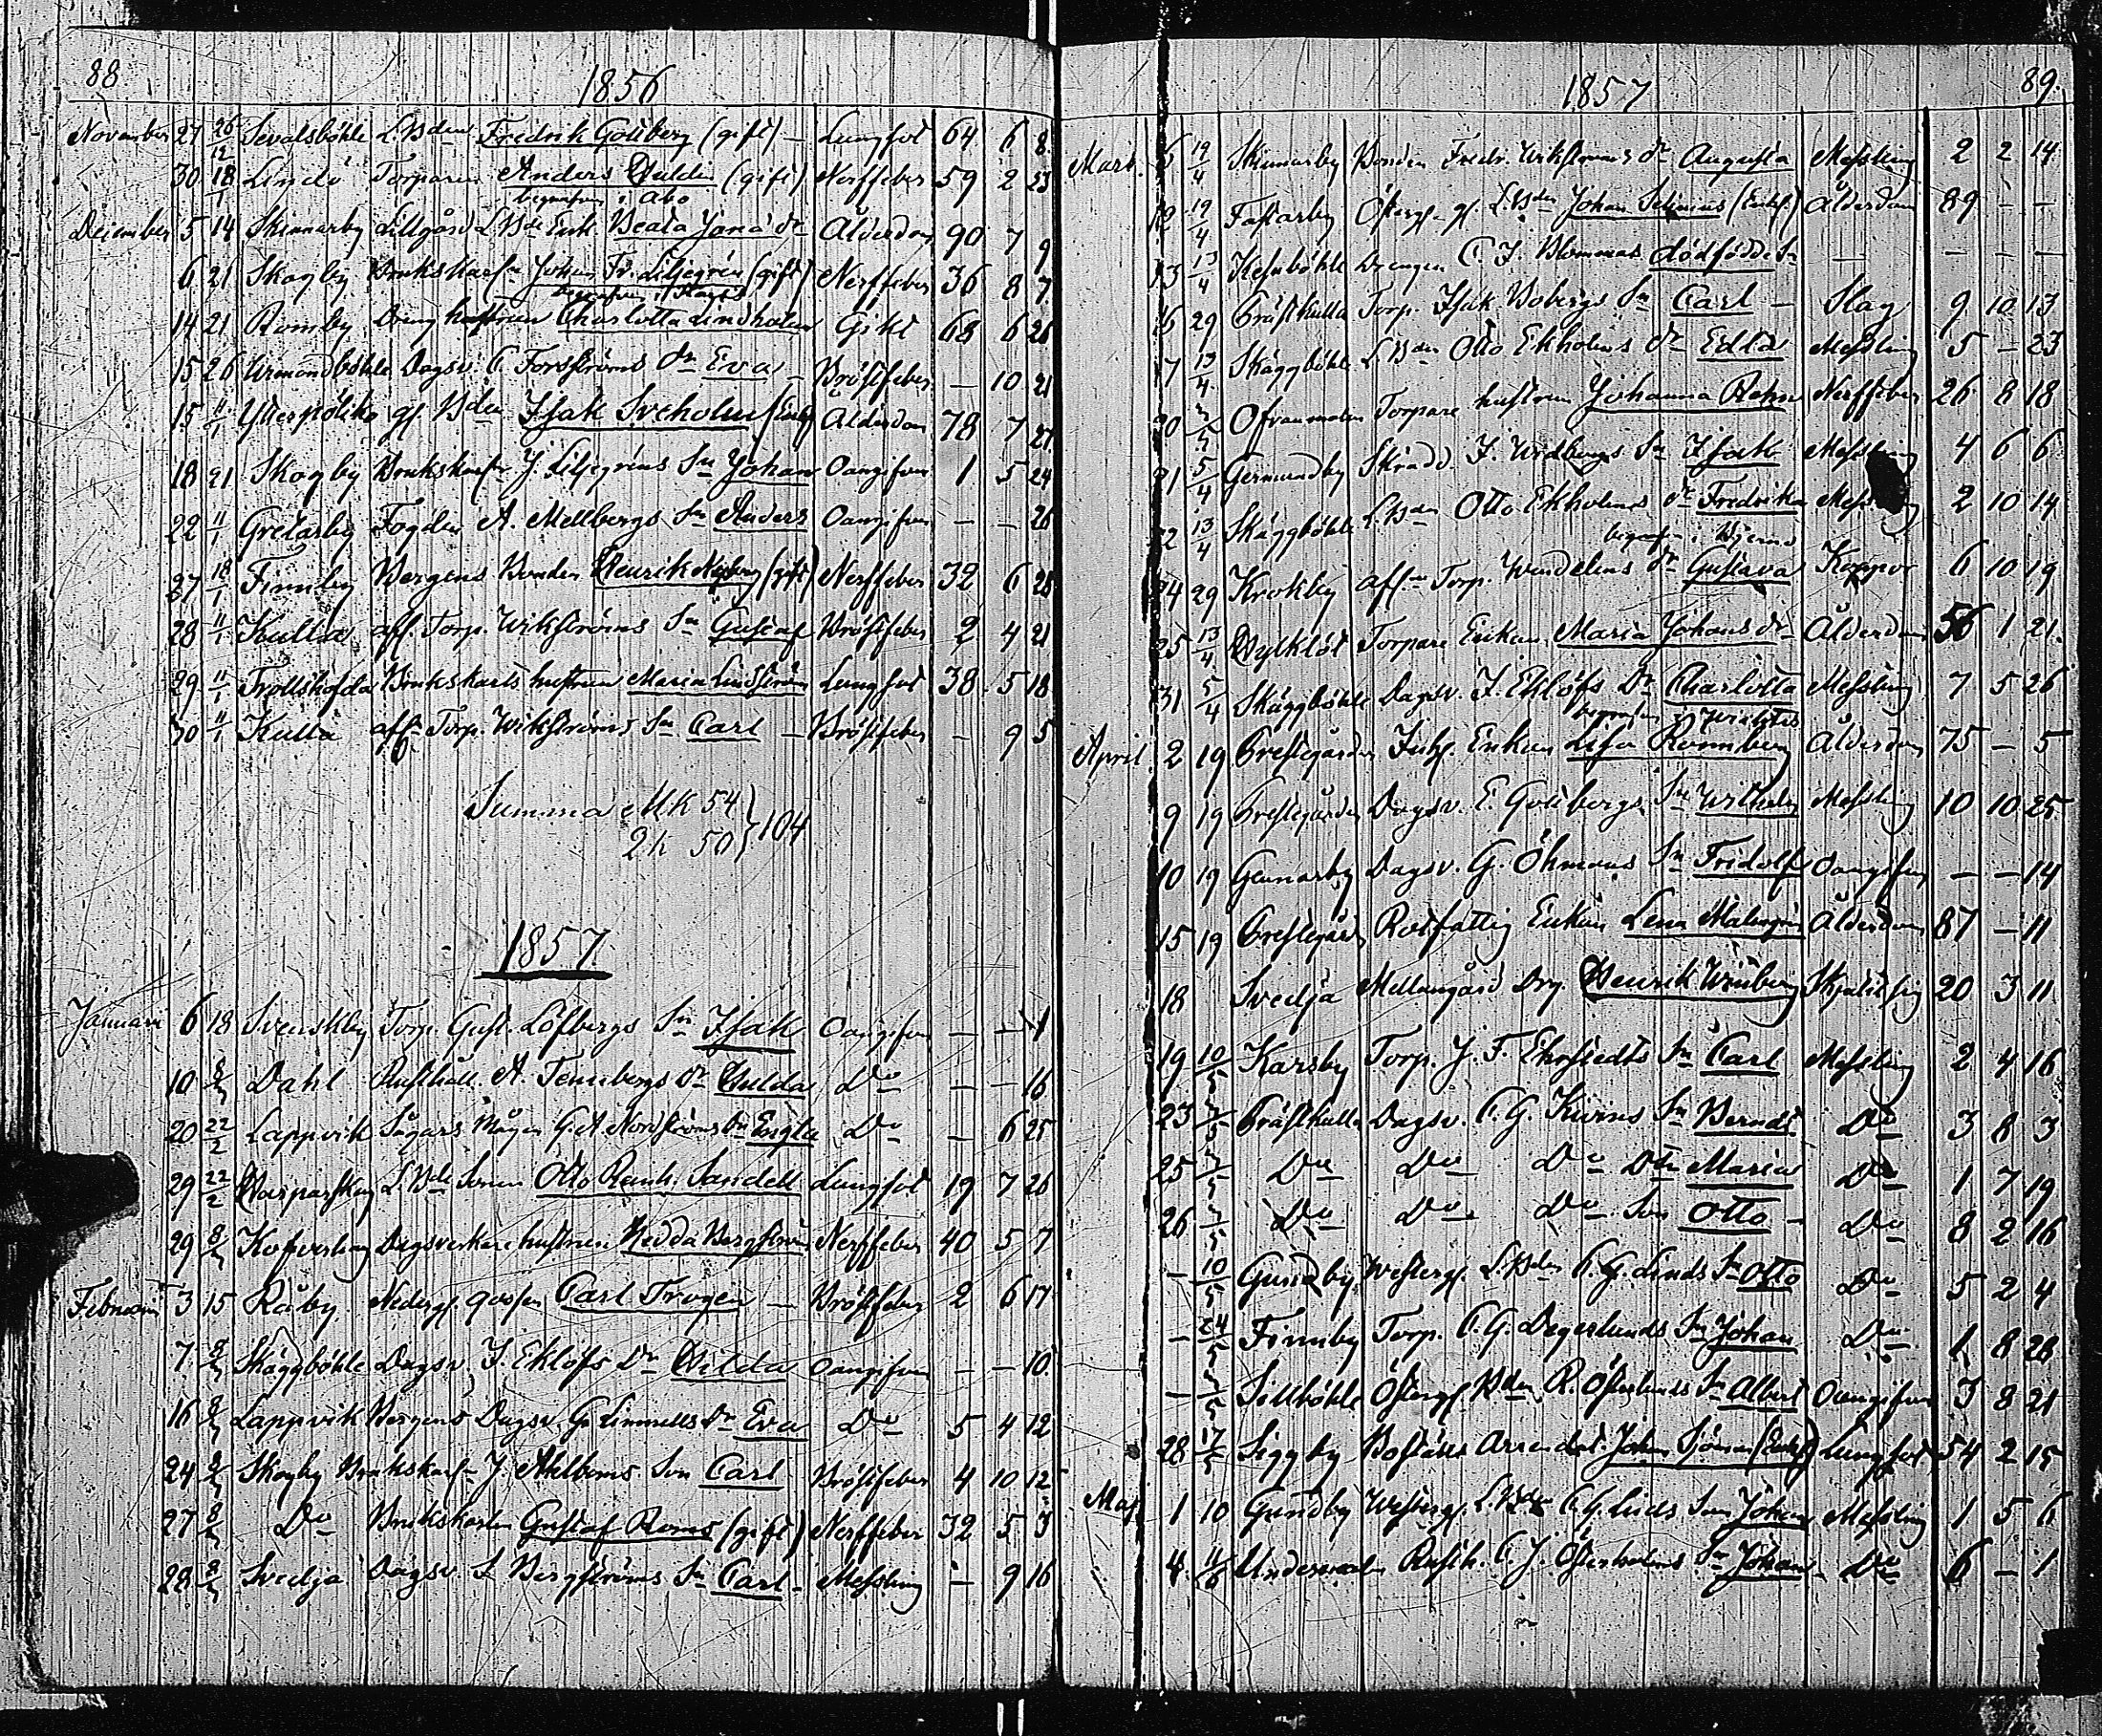 88
1856
November 27 26/12 Sevalsböhle L.Bden Fredrik Gottberg (gift) - Lungsot 64 6 8
30 18/1 Lindö Torparen Anders Huldin (gift) Nerffeber 59 2 23
begrafven i Åbo
December 5 14 Skinnarby Lillgård L.Bde Enk. Beata Jana dr Ålderdom 90 7 9
6 21 Skogby Brukskarln Johan Fr. Liljegrén (gift) Nerffeber 36 8 7
14 21 Romby Dreng hustrun Charlotta Lindholm Gikt 68 6 26
15 26 Dagsv. C. Forsströms dr Eva - Bröstfeber - 10 21
15 11/1 gf. Bden Isak Sveholm (Enkl) Ålderdom 78 7 27
18 21 Skogby Bruksk. J. Liljegréns Sn Johan Oangifven 1 5 24
22 11/1 Gretarby Fogden A. Mellbergs Sn Anders Oangifven - - 26
27 18/1 Finnby Bergens Bonden Henrik Nyberg (gift) Nerffeber 32 6 28
28 11/1 Kulla aff. Torp. Wikströms Sn Gustaf Bröstfeber 2 4 21
29 11/1 Trollshofda Brukskarls hustrun Maria Lindström Lungsot 38 5 18
30 11/1 Kulla aff. Torp. Wikströms Sn Carl - Bröstfeber - 9 5
Summa Mk 54
Qk 50 } 104
1857
Januari 6 18 Svenskby Torp. Gust. Löfbergs Sn Isak Oangifven - - 1
10 8/2 Dahl Rusthåll. A. Tennbergs dr Hulda Do - - 16
20 22/2 Lappvik Sågars G. A. Nordströms Dr Engla Do - 6 25
29 22/2 L.Bde Sonen Otto Reinh. Sandell Lungsot 19 7 26
29 8/2 Kofverhag Dagsverkare hustrun Hedda Bergström Nerffeber 40 5 7
Februari 3 15 Råby Nedergf. gossen Carl Trogen - Bröstfeber 2 6 17
7 8/2 Skäggböhle Dagsv. J. Eklöfs Dr Hilda Oangifven - - 10
16 8/2 Lappvik Bergens Dagsv. G. Limnells Dr Eva Do 5 4 12
24 8/2 Skogby Brukskarln J. Ahlboms Son Carl Bröstfeber 4 10 12
27 8/2 Do Brukskarln Gustaf Roms (gift) Nerffeber 32 5 3
28 8/2 Svedja Dagsv. S. Bergströms Sn Carl - Messling - 9 16
1857
89.
Mart. 6 19/4 Skinnarby Bonden Fredr. Wikströms dr Augusta Messling 2 2 14
12 19/4 Fastarby Östergf. gf. L.Bden Johan Selenius (Enkl.) Ålderdom 89 - -
13 13/4 Kesuböhle Drengen C. J. Blommas dödfödde Sn - - - -
15 29 Prästkulla Torp. Isak Bobergs Sn Carl - Slag 9 10 13
17 13/4 Skäggböhle L.Bden Otto Ekholms dr Edla Messling 5 - 23
20 Ofvanmalm Torpare hustrun Johanna Rehn Nerffeber 26 8 18
21 5/4 Germundby Skrädd. F. Widbergs Sn Isak Messling 4 6 6
22 13/4 Skäggböhle L.Bden Otto Ekholms dr Fredrika Messling 2 10 14
begrafven i Bjerno
24 29 Krokby aff. Torp. Wendelins dr Gustava Koppor 6 10 19
25 13/4 Torpare Enkan Maria Johans dr Ålderdom 56 1 21
31 5/4 Skäggböhle Dagsv. J. Eklöfs Dr Charlotta Messling 7 5 26
begrafven i Wichtis
April 2 19 Prestgården Inh. Enkan Lisa Rönnberg Ålderdom 75 - 5
9 19 Prestgården Dagsv. E. Gottbergs Sn Wilhelm Messling 10 10 25
10 19 Gennarby Dagsv. G. Öhmans Sn Fridolf Oangifven - - 14
15 19 Prestgård Rotfattig Enkan Lena Malmgren Ålderdom 87 - 11
18 Svedja Mellangård Drg. Henrik Winberg 20 3 11
19 10/5 Karsby Torp. J. F. Ehrstedts Sn Carl Messling 2 4 16
23 3/5 Prästkulla Dagsv. C. G. Sn Berndt Do 3 8 3
25 3/5 Do Do Do Dtr Maria Do 1 7 19
26 3/5 Do Do Do Son Otto - Do 8 2 16
- 10/5 Gundby Westergf. L.Bden C. G. Linds Sn Otto Do 5 2 4
- 24/5 Finnby Torp. C. G. Degerlunds Sn Johan Do 1 8 28
- 3/5 Sillböhle Östergf. Bden R. Österlunds Sn Albert Oangifven 3 8 21
28 17/5 Siggby Boställs Arrendat. Johan Sjöman (Enkl) Lungsot 54 2 15
Maj 1 10 Gundby Westergf. L.Bden C. G. Linds Son Johan Messling 1 5 6
4 11/6 Rusth. C. J. Österholms Sn Johan Do 6 - 1